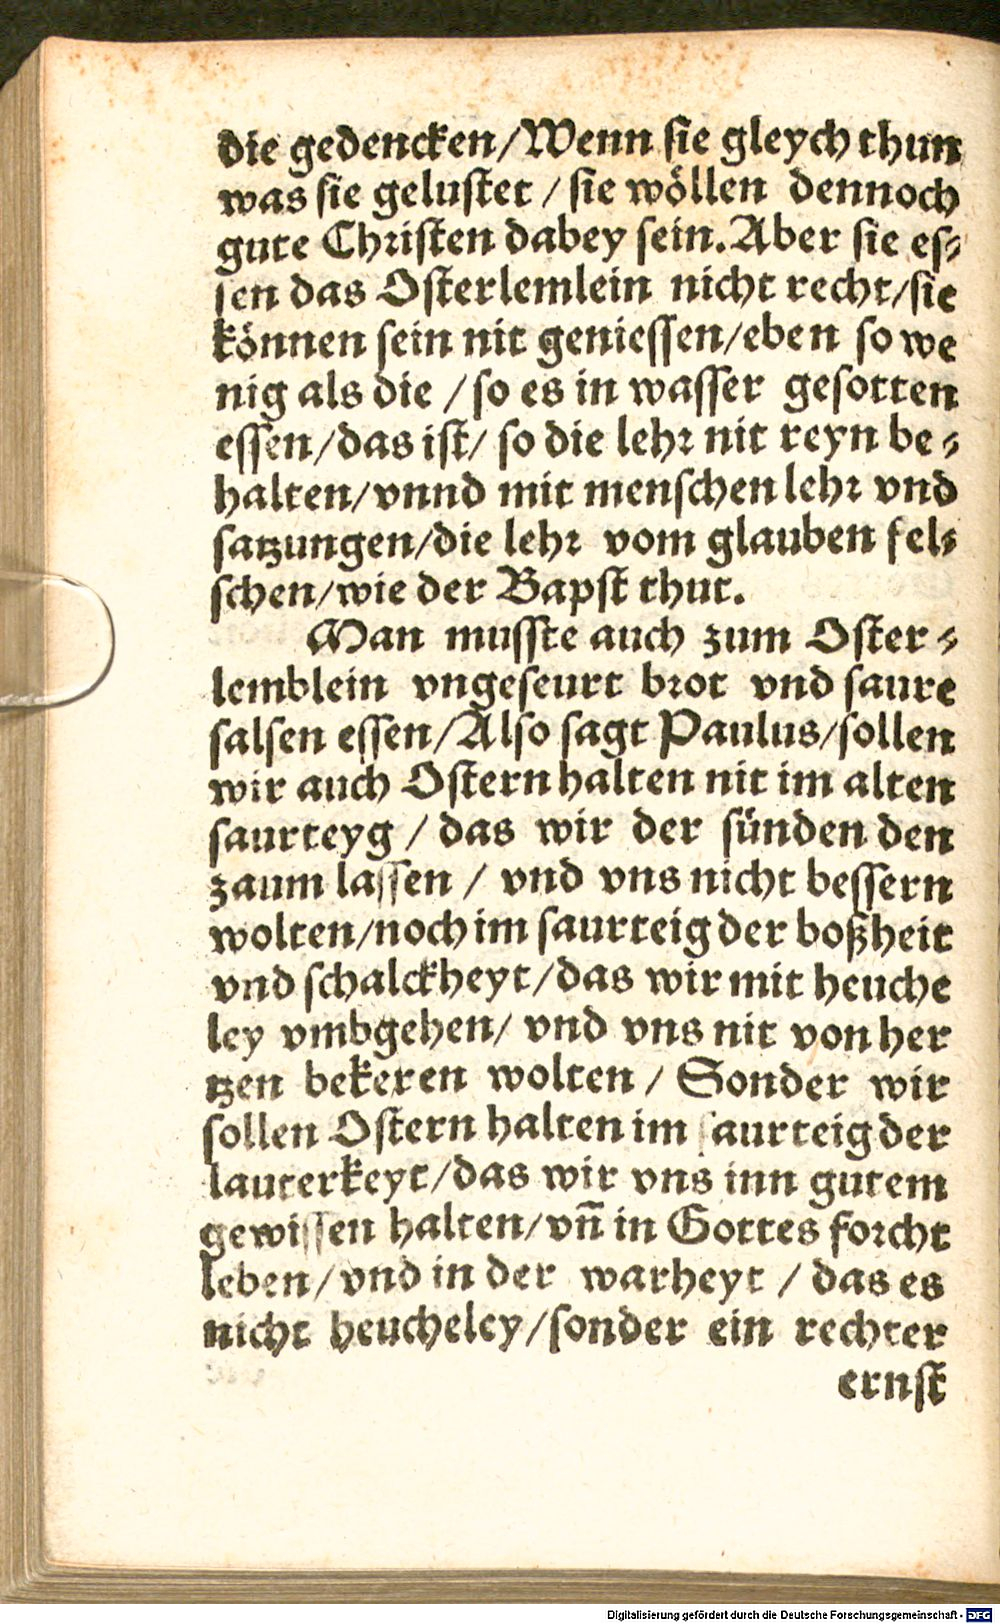 die gedencken/Wenn sie gleych thun
was sie gelustet / sie wöllen dennoch
gute Christen dabey sein. Aber sie es⸗
sen das Osterlemlein nicht recht/sie
können sein nit geniessen/eben so we
nig als die / so es in wasser gesotten
essen/das ist/ so die lehr nit reyn be⸗
halten/vnnd mit menschen lehr vnd
satzungen/die lehr vom glauben fel⸗
schen/wie der Bapst thut.
Man musste auch zum Oster⸗
lemblein vngeseurt brot vnd saure
salsen essen/Also sagt Paulus/sollen
wir auch Ostern halten nit im alten
saurteyg / das wir der sünden den
zaum lassen / vnd vns nicht bessern
wolten/noch im saurteig der boßheit
vnd schalckheyt/das wir mit heuche
ley vmbgehen/ vnd vns nit von her
tzen bekeren wolten / Sonder wir
sollen Ostern halten im saurteig der
lauterkeyt/das wir vns inn gutem
gewissen halten/vn̄ in Gottes forcht
leben/vnd in der warheyt / das es
nicht heucheley/sonder ein rechter
ernst
Digitalisierung gefördert durch die Deutsche Forschungsgemeinschaft - DFG